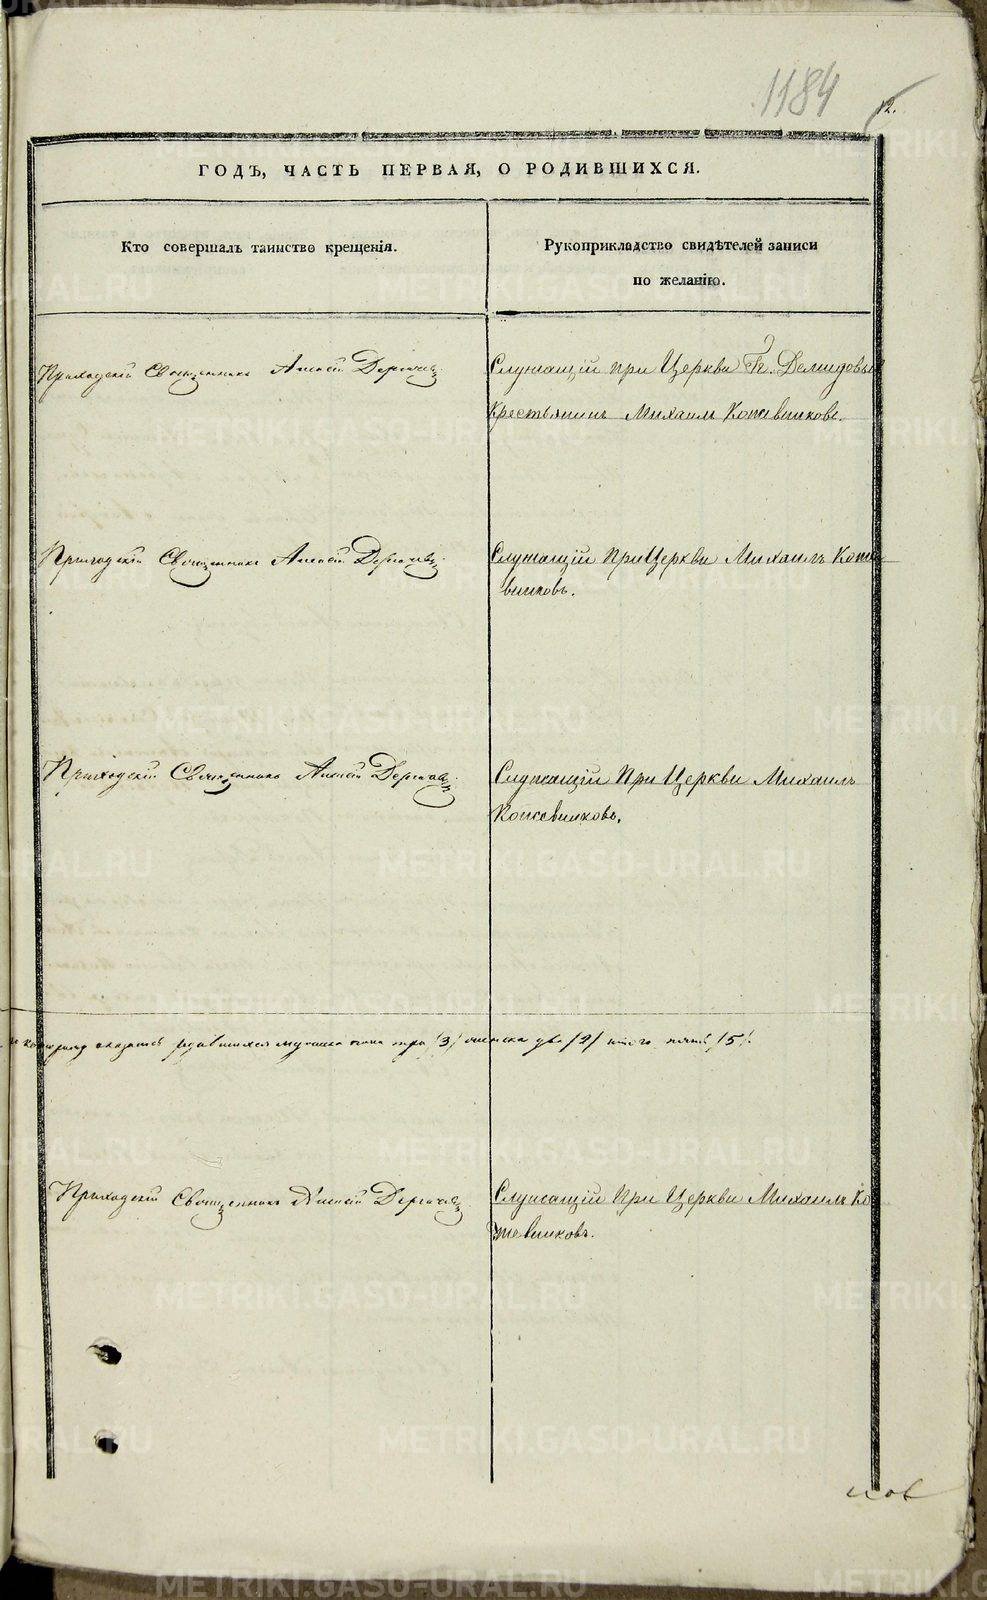 1184
2.
ГОДЪ, ЧАСТЬ ПЕРВАЯ, О РОДИВШИХСЯ.
Кто совершалъ таинство крещенія.
Рукоприкладство свидѣтелей записи
по желанію.
Приходскій Священникъ
Служащій при Церкви Гг. Демидовыхъ
Крестьянинъ Михаилъ Кожевниковъ.
Приходскій Священникъ
Служащій При Церкви Михаилъ Коже-
вниковъ.
Приходскій Священникъ
Служащій При Церкви Михаилъ
Кожевниковъ.
родившихся мужеска пола три /3/ женска два /2/ итого пять /5/.
Приходскій Священникъ
Служащій При Церкви Михаилъ Ко
жевниковъ.
METRIKI.GASO-URAL.RU